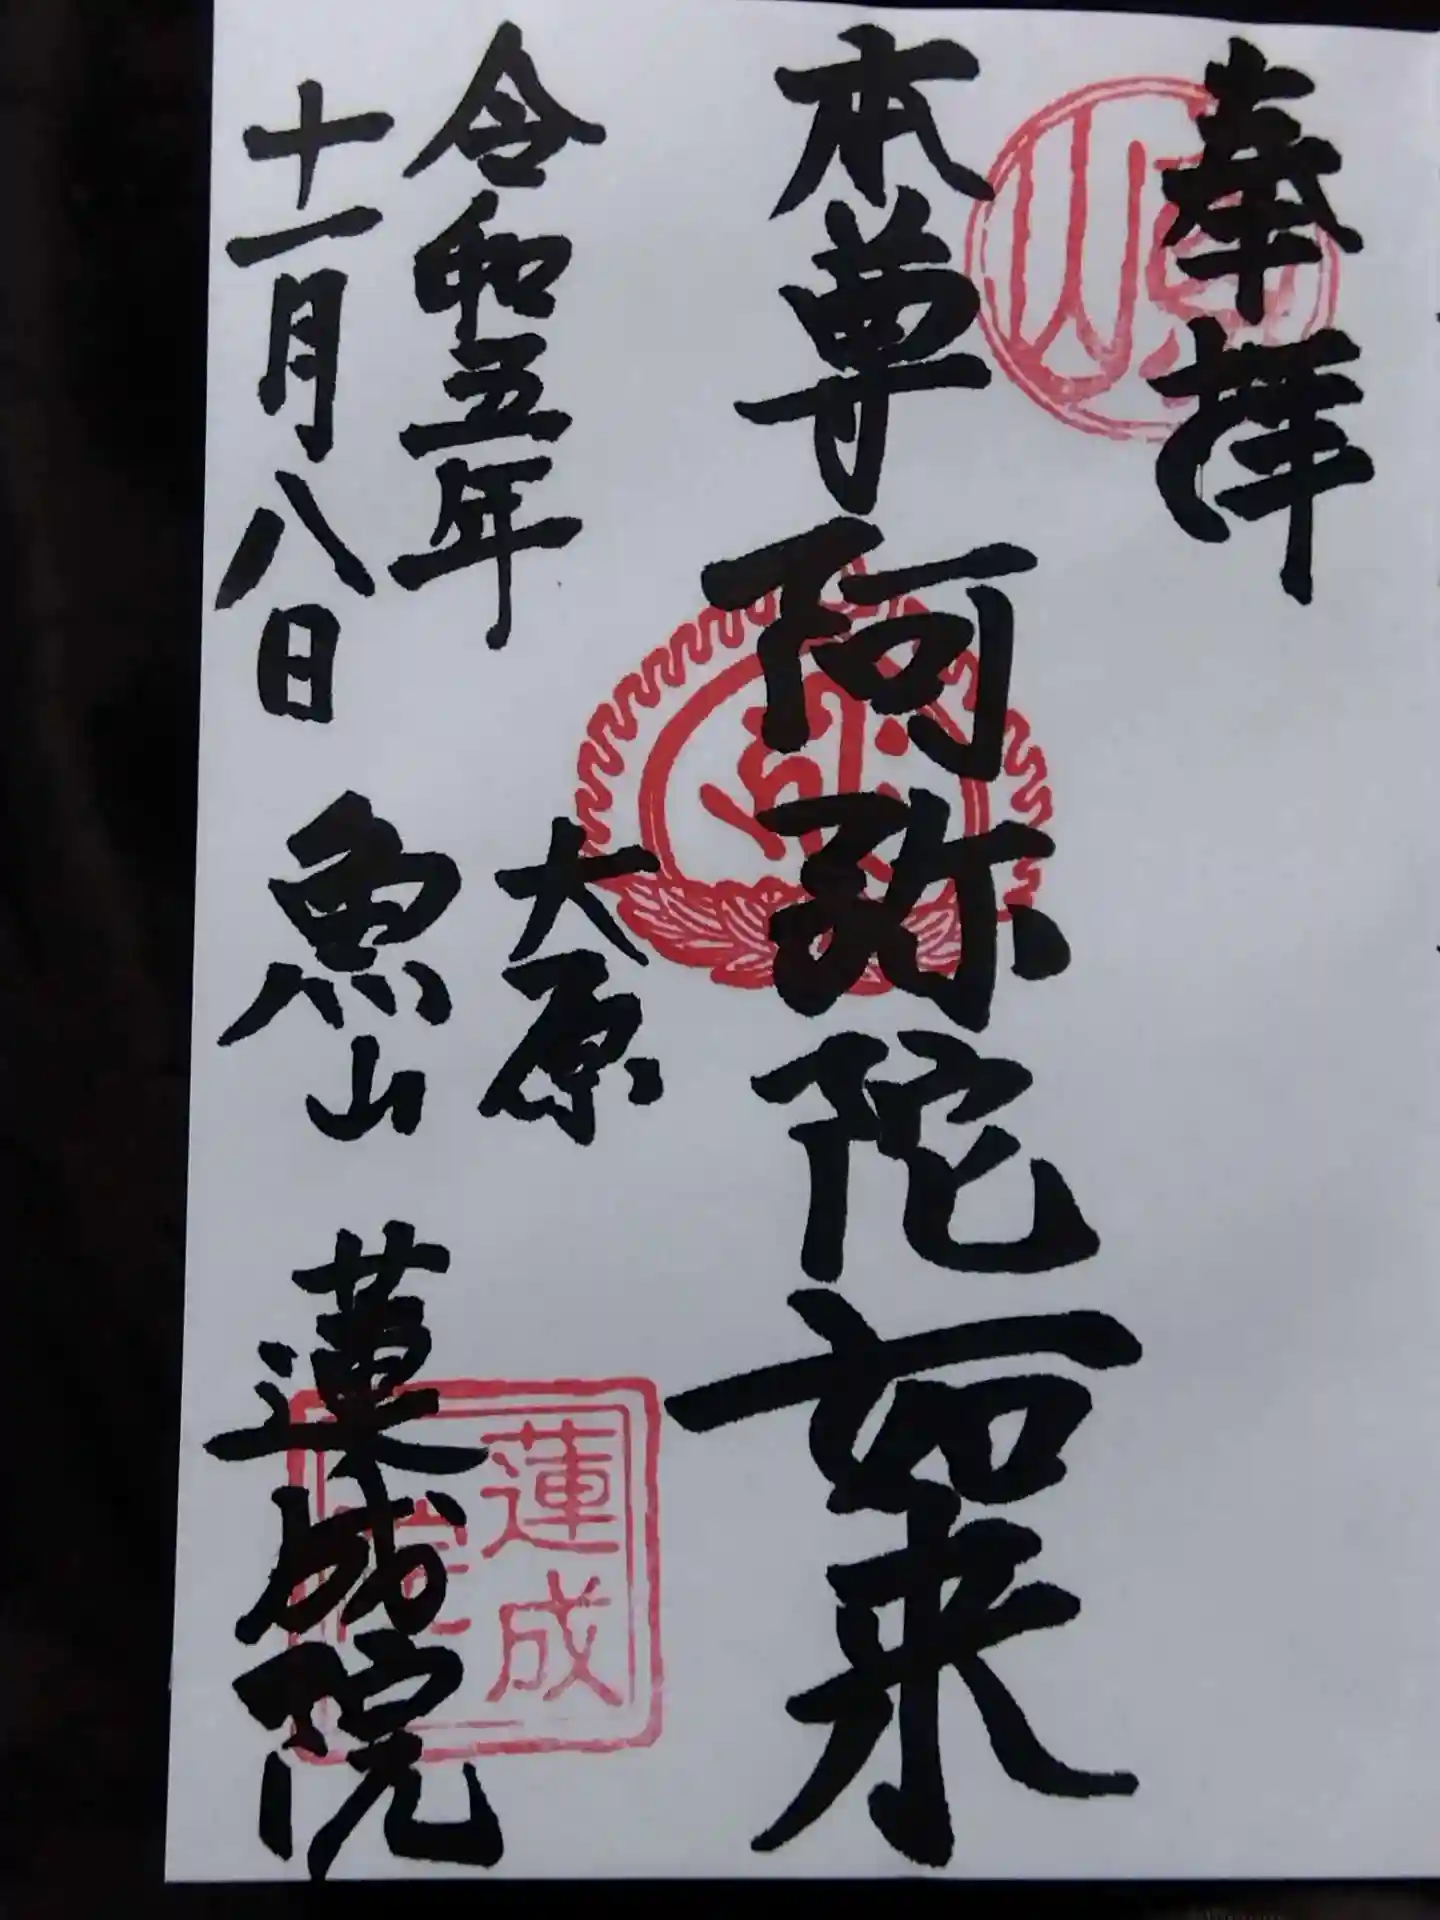 奉拝
本尊阿弥陀如来
令和五年
十一月八日
大原
魚山
蓮成院
蓮成
院